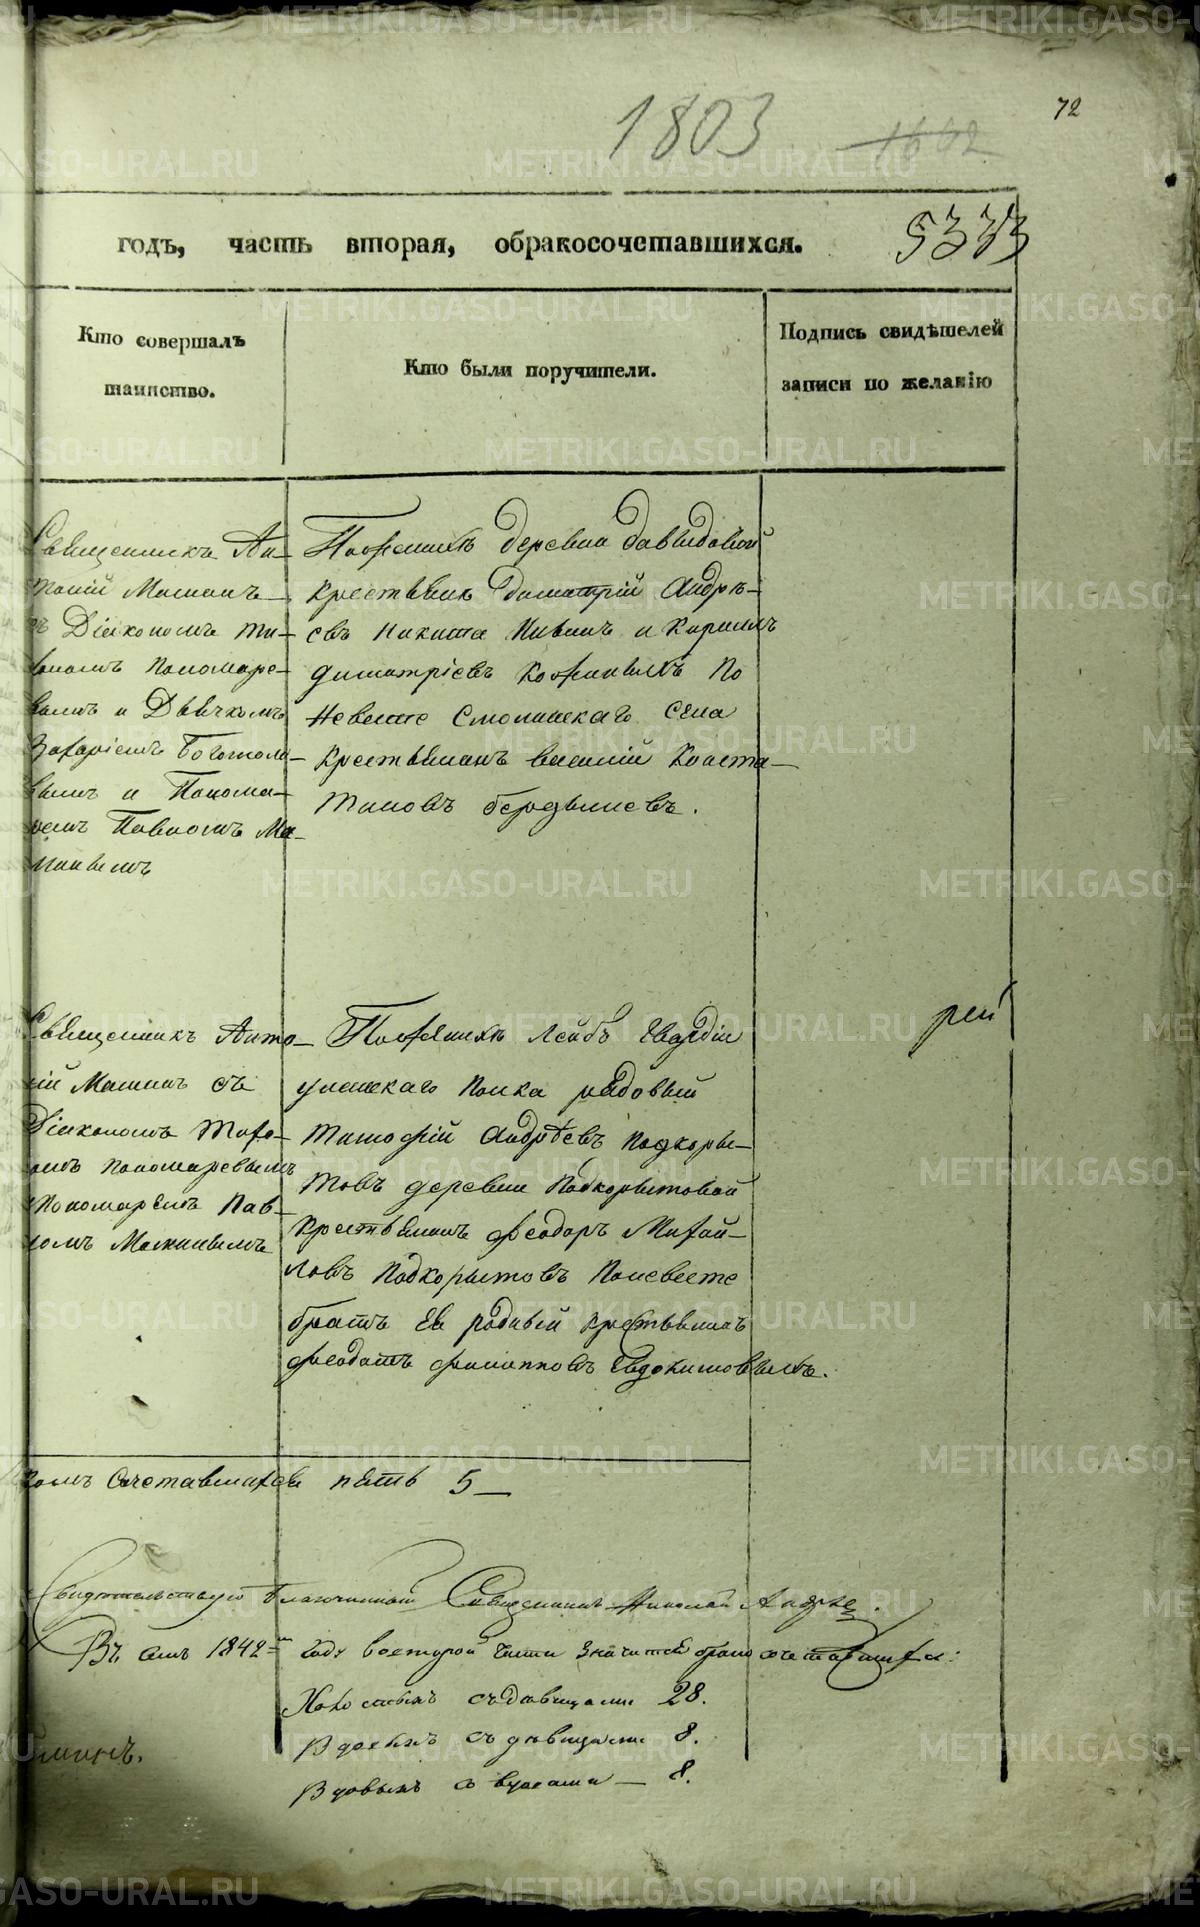 72
1803
1602
годъ, часть вторая, обракосочетавшихся.
5333
Кто совершалъ
таинство.
Кто были поручители.
Подпись свидѣтелей
записи по желанію
Священникъ Ан-
тоній Машинъ
съ Діякономъ
Пономаре-
вымъ и Дьячкомъ
Захаріемъ Богомоло-
вымъ и Понома-
ремъ Павломъ
Поженихѣ деревни Давыдовой
крестьяне Димитрій Андрѣ-
евъ Никита Ивинъ и Кирилъ
Димитріевъ Кожиныхъ По
Невесте Смолинскаго Села
Крестьянинъ василій Конста-
тиновъ бердышевъ.
Священникъ Анто-
ній Машинъ съ
Діякономъ
Пономаревымъ
Пономаремъ Пав-
ломъ
Поженихѣ Лейбъ Гвардіи
уланскаго Полка рядовый
Тимофій Андрѣевъ Подкоры-
товъ деревни Подкорытовой
Крестьянинъ феодоръ Михай-
ловъ Подкорытовъ Поневесте
братъ Ея родный крестьянинъ
феодотъ филипповъ Евдокимовыхъ.
рей
Сочетавшихся пять 5
Свидѣтельствую Благочинный Священникъ Николай
Въ семъ 1842 году вовторой части значится бракосочетавшихся:
Холостыхъ съ девицами 28.
Вдовыхъ съ девицами 8.
Вдовыхъ со вдовами 8.
METRIKI.GASO-URAL.RU